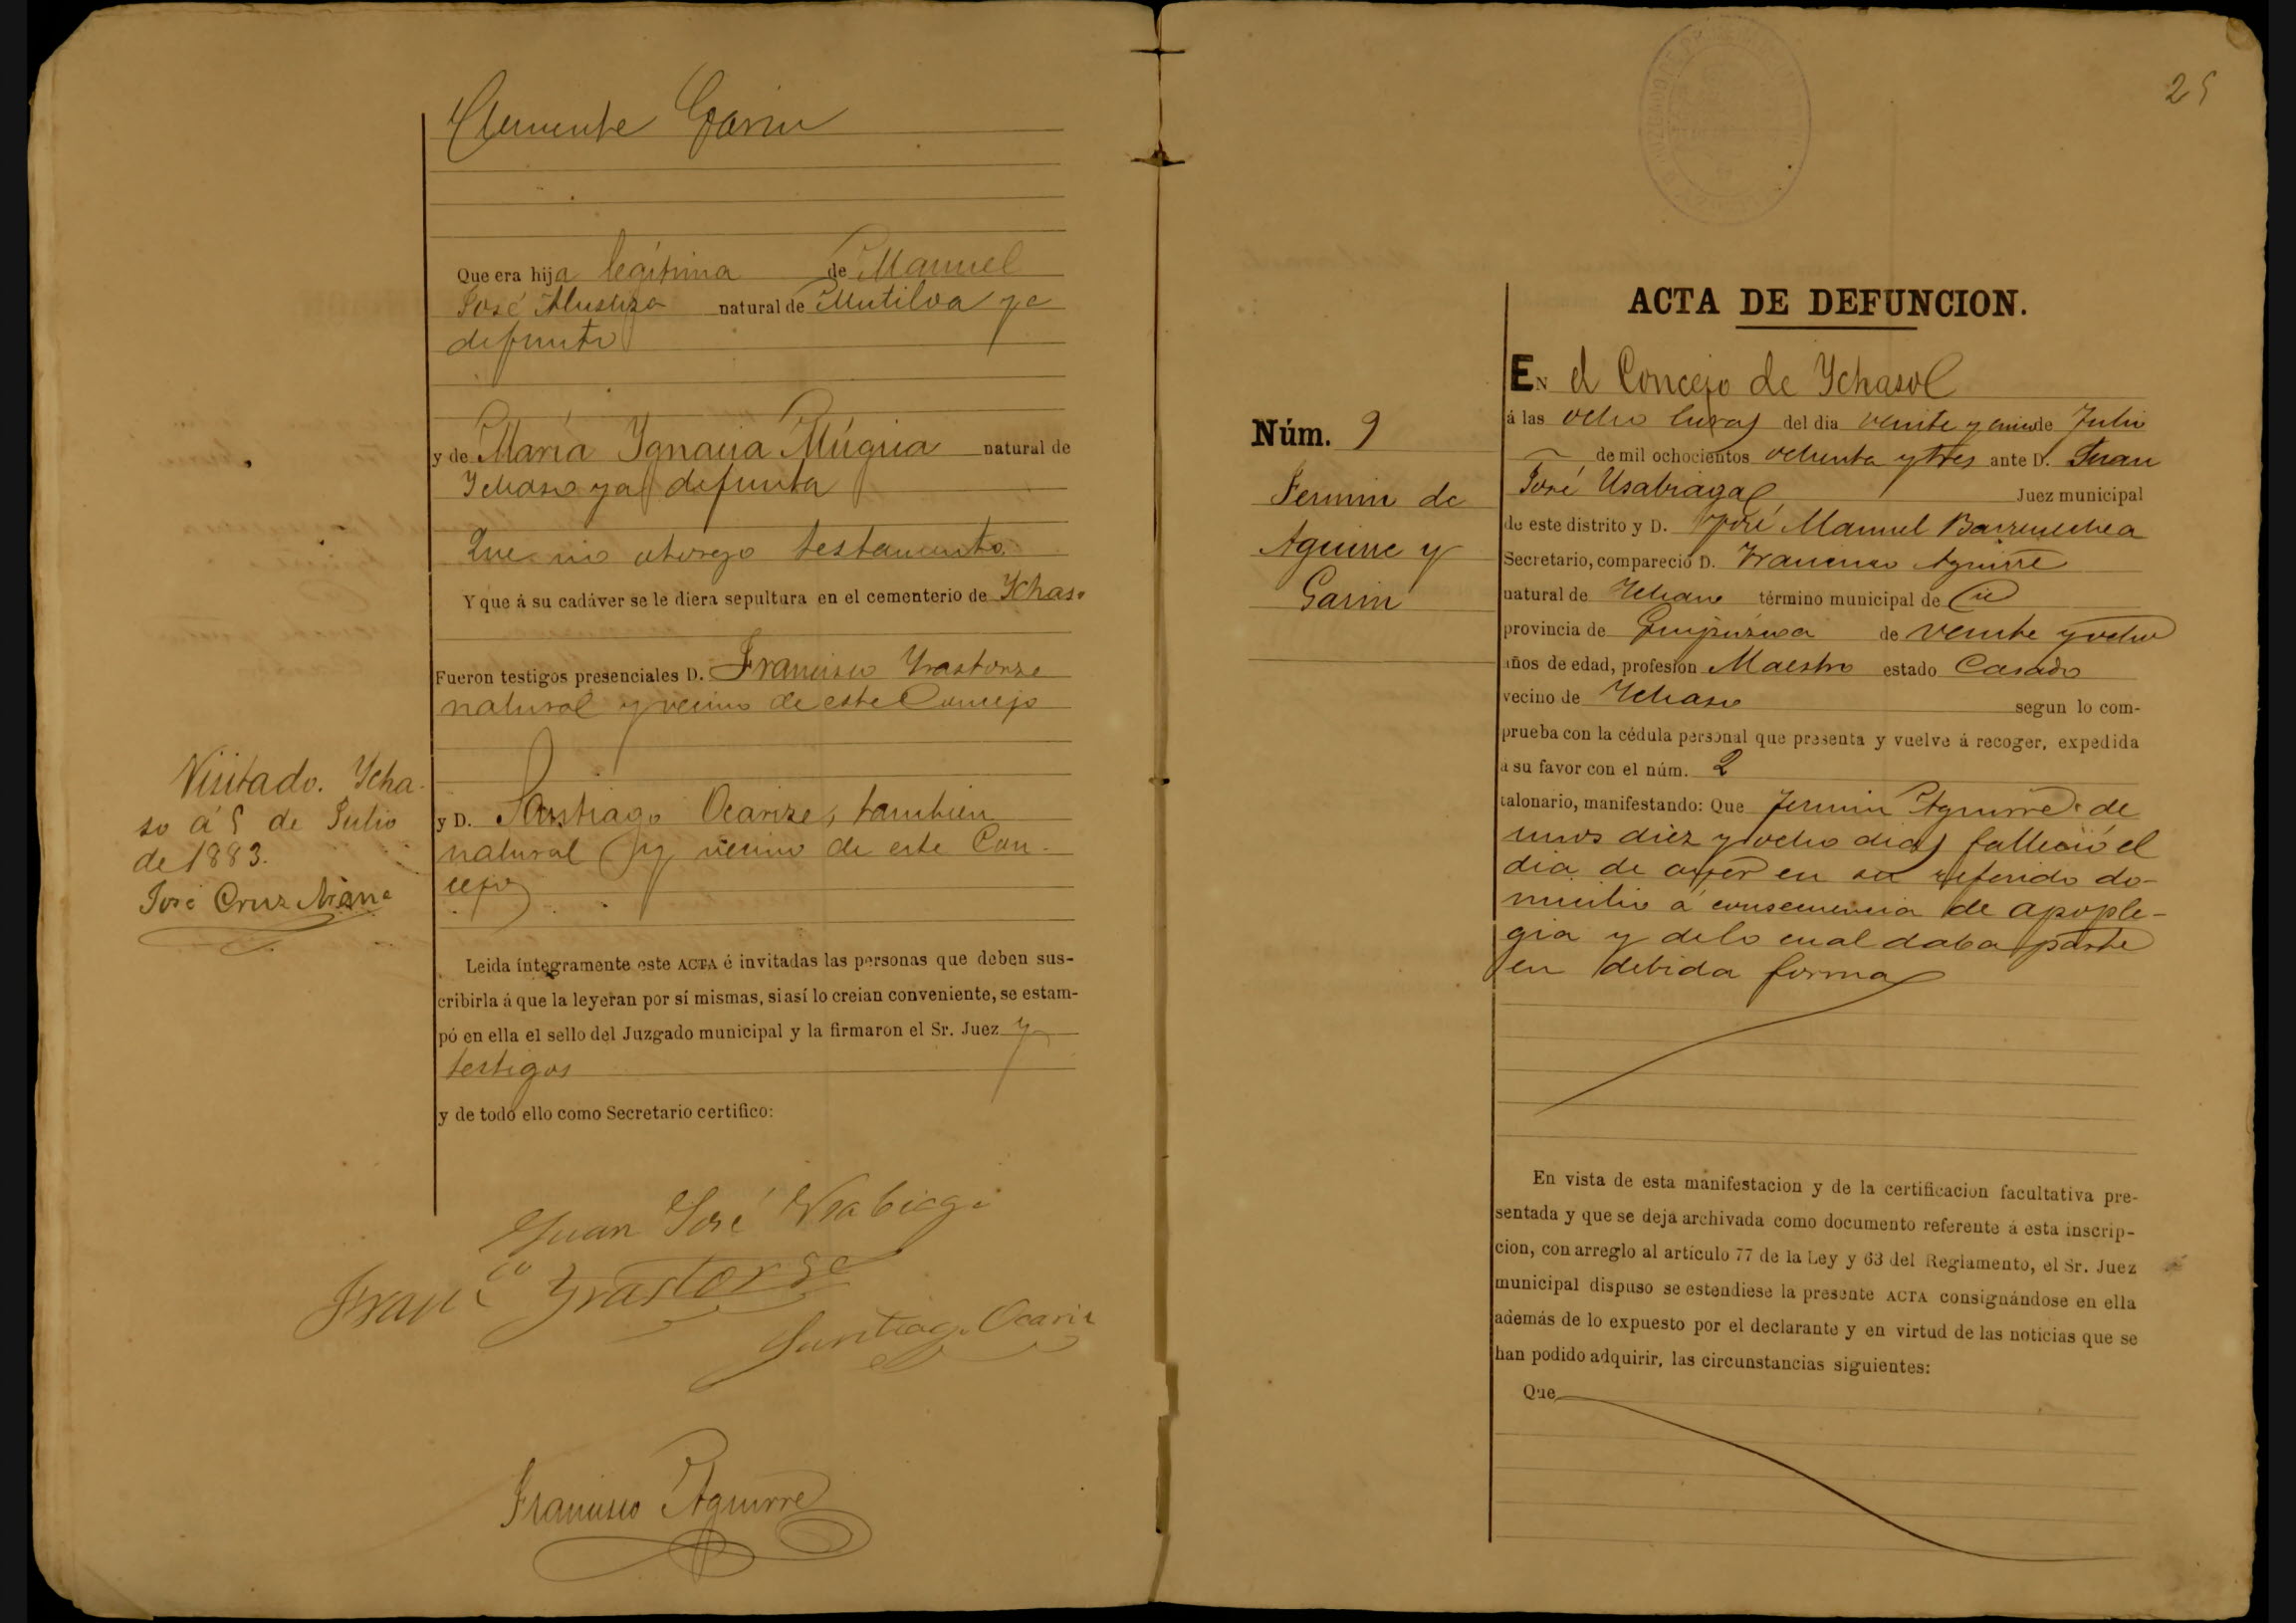 Clemente Garin
Que era hija legítima de Manuel
José Alustiza natural de Mutiloa ya
defunto
y de María Ygnacia Múgica natural de
Ychaso ya defunta
Que no otorgo testamento.
Y que á su cadáver se le diera sepultura en el cementerio de Ychaso
Fueron testigos presenciales D. Francisco Yrastorza
natural y vecino de este Concejo
y D. Santiago Ocariz, tambien
natural y vecino de este Con-
cejo
Visitado. Ycha-
so á 5 de Julio
de 1883.
José Cruz
Leida íntegramente este ACTA é invitadas las personas que deben sus-
cribirla á que la leyeran por sí mismas, si así lo creian conveniente, se estam-
pó en ella el sello del Juzgado municipal y la firmaron el Sr. Juez y
testigos
y de todo ello como Secretario certifico:
Juan José Usabiaga
Franco Yrastorza
Santiago Ocariz
Francisco Aguirre
25
ACTA DE DEFUNCION.
Núm. 9
Fermin de
Aguirre y
Garin
EN el Concejo de Ychaso
á las ocho horas del dia veinte y cinco de Julio
de mil ochocientos ochenta y tres ante D. Juan
José Usabiaga Juez municipal
de este distrito y D. José Manuel Barrenechea
Secretario, compareció D. Francisco Aguirre
natural de Ychaso término municipal de id
provincia de Guipúzcoa de veinte y ocho
años de edad, profesion Maestro estado Casado
vecino de Ychaso segun lo com-
prueba con la cédula personal que presenta y vuelve á recoger, expedida
a su favor con el núm. 2
talonario, manifestando: Que Fermin Aguirre de
unos diez y ocho dias falleció el
dia de ayer en su referido do-
micilio á consecuencia de apople-
gia y de lo cual daba parte
en debida forma
En vista de esta manifestacion y de la certificacion facultativa pre-
sentada y que se deja archivada como documento referente á esta inscrip-
cion, con arreglo al artículo 77 de la Ley y 63 del Reglamento, el Sr. Juez
municipal dispuso se estendiese la presente ACTA consignándose en ella
además de lo expuesto por el declarante y en virtud de las noticias que se
han podido adquirir, las circunstancias siguientes:
Que